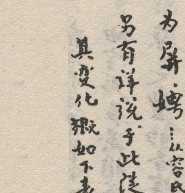 为屏嫣…以容
另有详说于此
其变化擬如下表